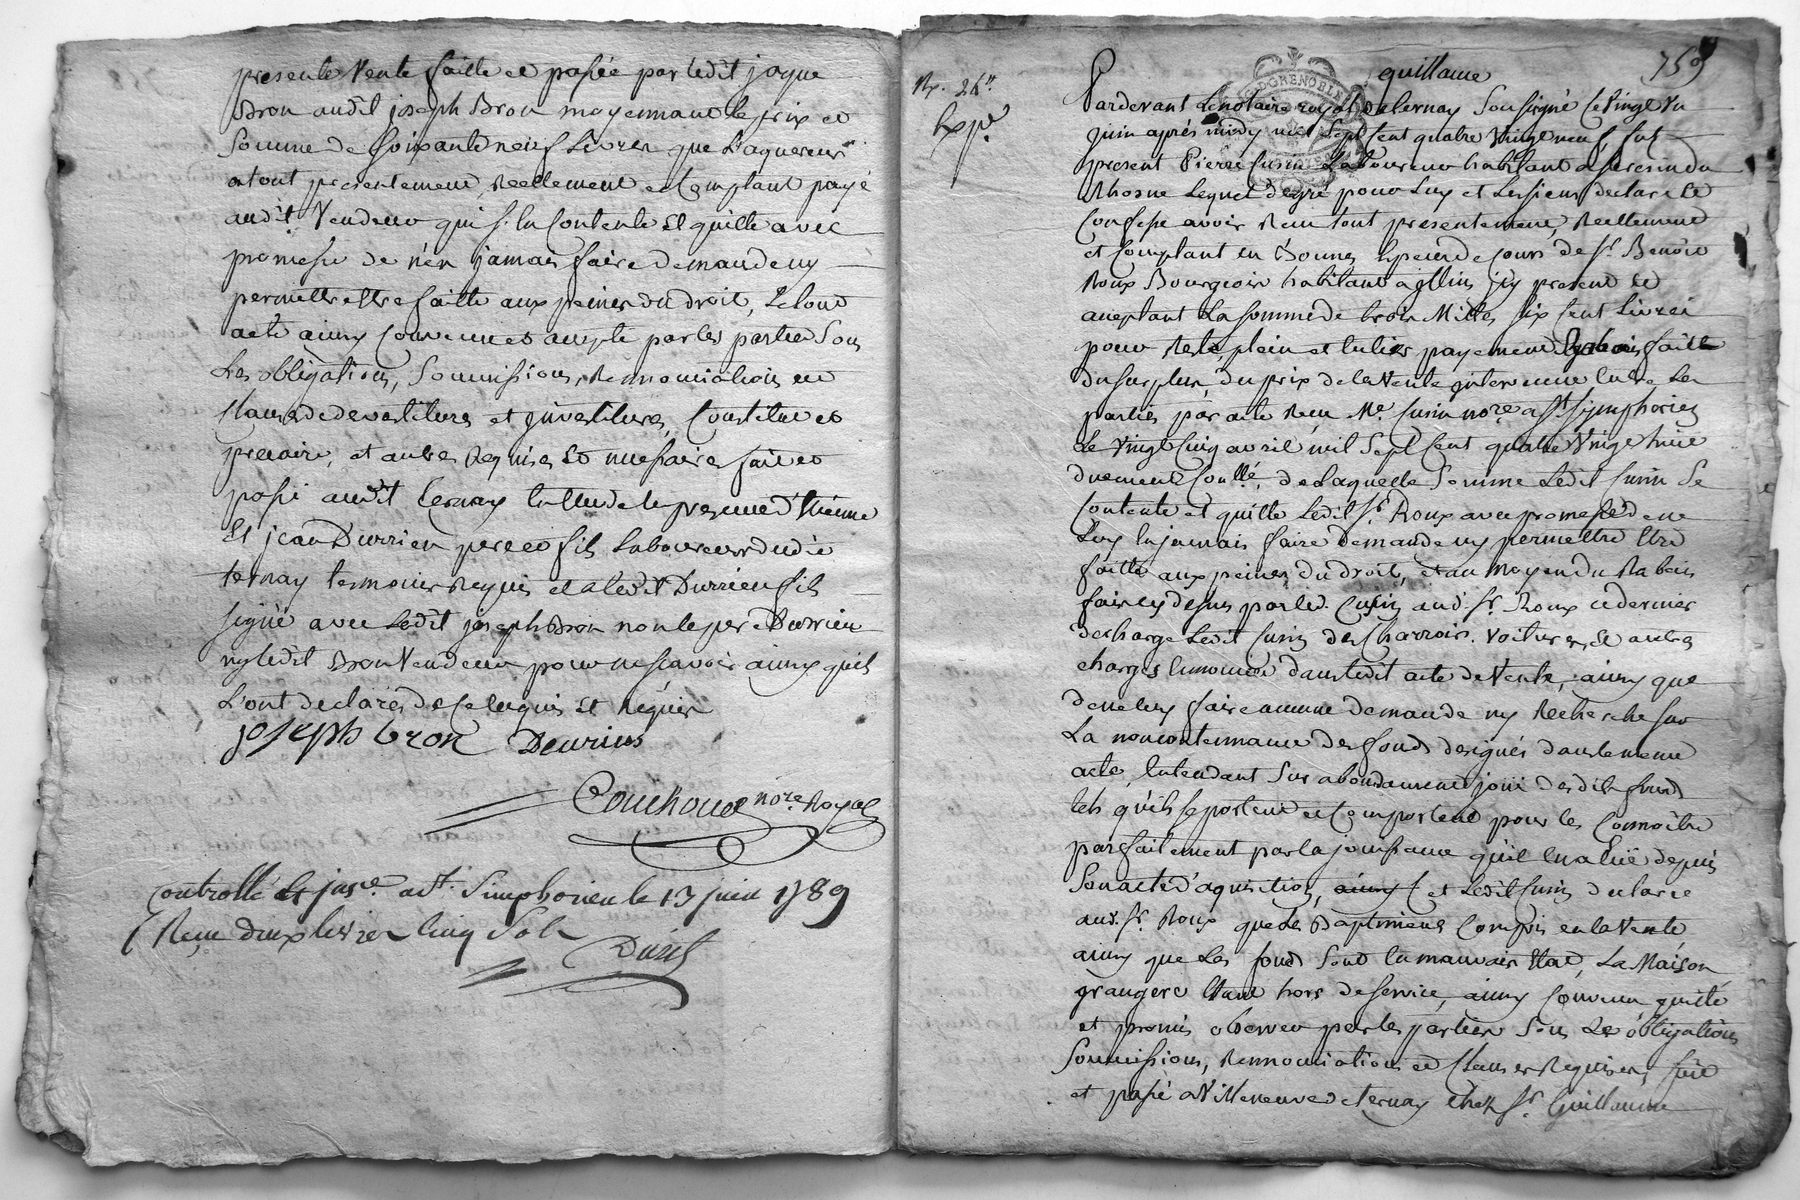 presente Vente faitte et passée par ledit jaque
Bron audit joseph Bron moyennant le prix et
Somme de Soixante neuf Livres que L'aquereur
a tout presentement, Reellement et Comptant payé
audit Vendeur qui s'en Contente et quitte avec
promesse de n'en jamais faire demande ny
permettre être faitte aux peines du droit, Le tout
acte ainsy Convenu et accepté par les parties Sous
Les obligations, Soumissions, Rennonciations et
Clauses de devestitures et jnvestitures, Constitut et
precaire, et autres Requises et necessaires fait et
passé audit Ternay Etude le presence d'Etienne
Et jean Durrieu pere et fils Laboureurs dudit
ternay temoins Requis et a ledit Durrieu fils
signé avec Ledit joseph Bron non le pere Durrieu
ny ledit Bron Vendeur pour ne scavoir ainsy quils
L'ont declarés de Ce Enquis et Requis
joseph bron Deurieus
Couchoud nore Royal
Controllé et a St. Simphorien le 13 juin 1789
Reçu deux livres cinq Sols
759
guillaume
R. 26
Expe
GRENOBLE
Pardevant Le notaire royal de ternay Soussigné Ce Vingt un
juin après midy mil Sept Cent quatre Vingt neuf, fut
present Pierre Cusin Laboureur habitant a Serezin du
Rhosne Lequel de gré pour Luy et Les siens declare et
Confesse avoir Reçu tout presentement, Reellement
et Comptant en Bonnes Especes de Cours de Sr. Benoit
Roux Bourgeois habitant a jllins jcy present et
acceptant La Somme de trois Milles six Cent Livres
pour Reste, plein et entier payement Rabais faitte
du Surplus du prix de la Vente jntervenue Entre Les
parties par acte Reçu Me. Cusin nore a St Symphorien
Le Vingt Cinq avril mil Sept Cent quatre Vingt huit
duement Conllé, de Laquelle Somme Ledit Cusin Se
Contente et quitte Ledit Sr. Roux avec promesse de ne
Luy en jamais faire demande ny permettre Etre
faitte aux peines du Droit, et au moyen du Rabais
fait cy dessus par led. Cusin aud. Sr. Roux ce dernier
decharge Ledit Cusin des Charrois, Voitures, et autres
charges Ennoncées dans ledit acte de Vente, ainsy que
de ne luy faire aucune demande ny Recherche sur
La noncontennance des fonds designés dans le meme
acte, Entendant Sur abondament joüi desdits fonds
tels qu'ils se portent et Comportent pour les Connoitre
parfaitement par la jouissance qu'il en a Eüe depuis
Son acte d'aquisition, et Ledit Cusin declare
aud. Sr. Roux que Les Baptiments Compris en la Vente
ainsy que Les fonds Sont En mauvais Etat, La Maison
grangere Etant hors de service, ainsy Convenu quitté
et promis observer par les parties Sous Les obligations
Soumissions, Rennonciations et Clauses Requises, fait
et passé a Villeneuve de ternay Chez Sr. Guillaume